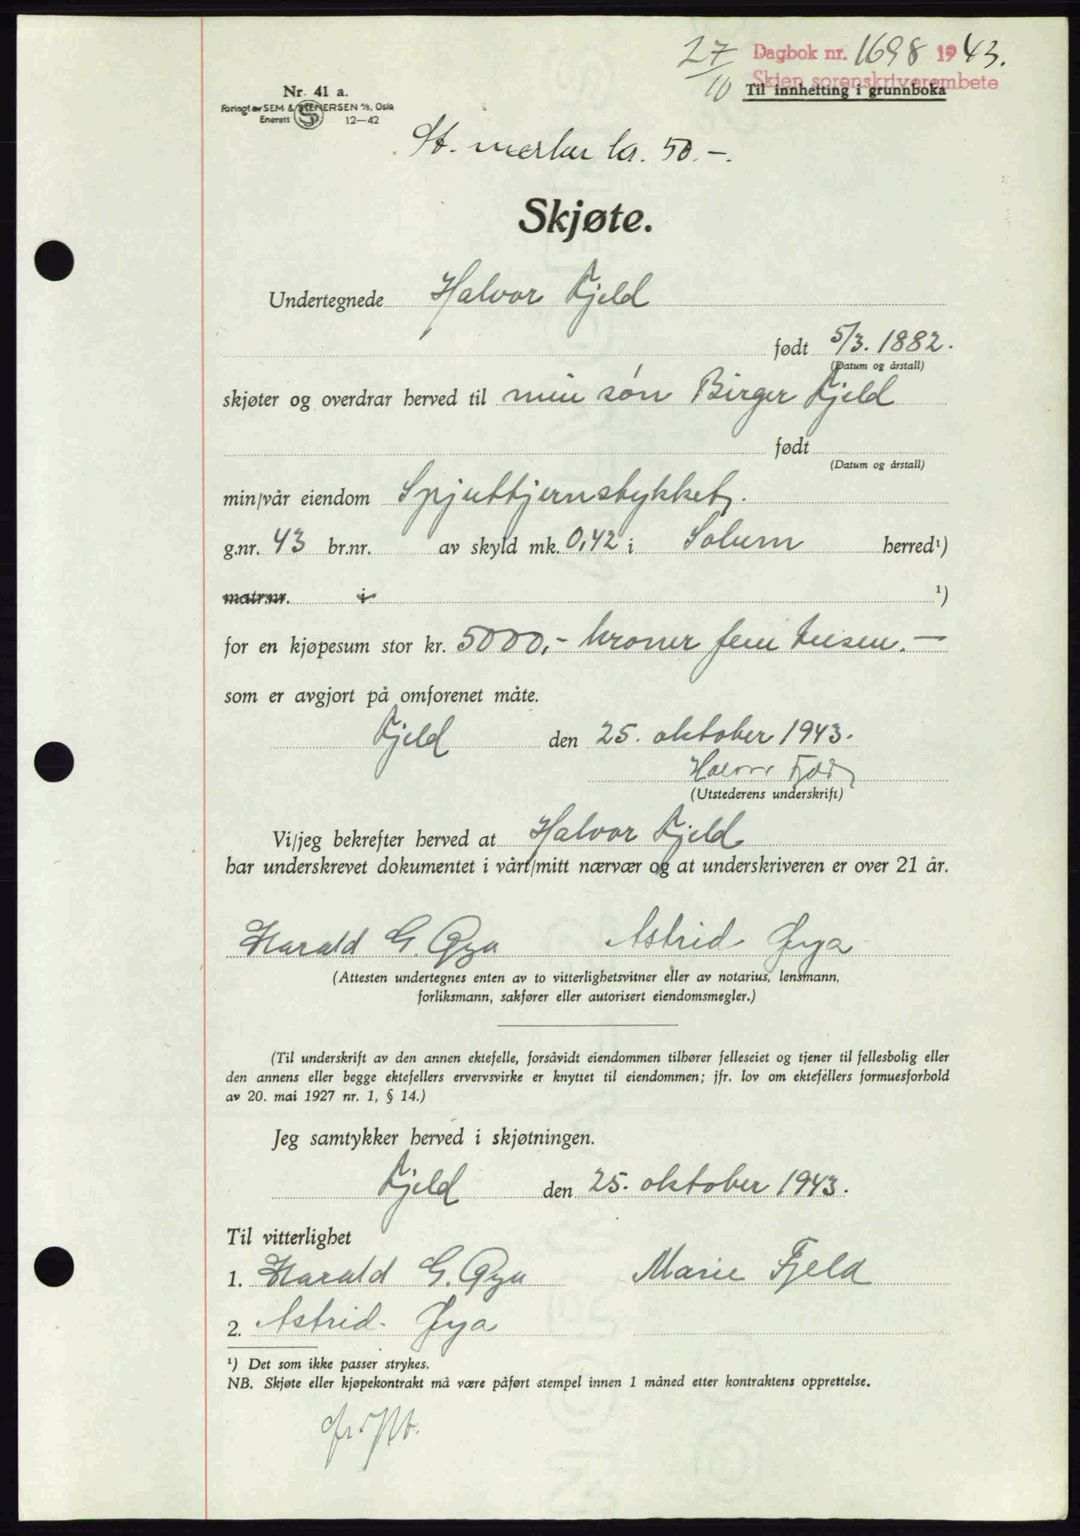 27/10 Dagbok nr. 1698 1943.
Skien sorenskriverembete
Til innhefting i grunnboka
Nr. 41 a.
Forlagt av SEM & STENERSEN A/S, Oslo
Enerett S 12—42
St. merker kr. 50.–.
Skjøte.
Undertegnede Halvor Fjeld
født 5/3. 1882.
(Datum og årstall)
skjøter og overdrar herved til min søn Birger Fjeld
født
(Datum og årstall)
min/vår eiendom Spjuttjernstykket.
g.nr. 43 br.nr. av skyld mk. 0,42 i Solum herred¹)
matr.nr. i ¹)
for en kjøpesum stor kr. 5000,- kroner fem tusen. —
som er avgjort på omforenet måte.
Fjeld den 25. oktober 1943.
Halvor Fjeld
(Utstederens underskrift)
Vi/jeg bekrefter herved at Halvor Fjeld
har underskrevet dokumentet i vårt/mitt nærvær og at underskriveren er over 21 år.
Harald G. Øya Astrid Øya
(Attesten undertegnes enten av to vitterlighetsvitner eller av notarius, lensmann,
forliksmann, sakfører eller autorisert eiendomsmegler.)
(Til underskrift av den annen ektefelle, forsåvidt eiendommen tilhører felleseiet og tjener til fellesbolig eller
den annens eller begge ektefellers ervervsvirke er knyttet til eiendommen; jfr. lov om ektefellers formuesforhold
av 20. mai 1927 nr. 1, § 14.)
Jeg samtykker herved i skjøtningen.
Fjeld den 25. oktober 1943.
Til vitterlighet
1. Harald G. Øya Marie Fjeld
2. Astrid Øya
¹) Det som ikke passer strykes.
NB. Skjøte eller kjøpekontrakt må være påført stempel innen 1 måned etter kontraktens opprettelse.